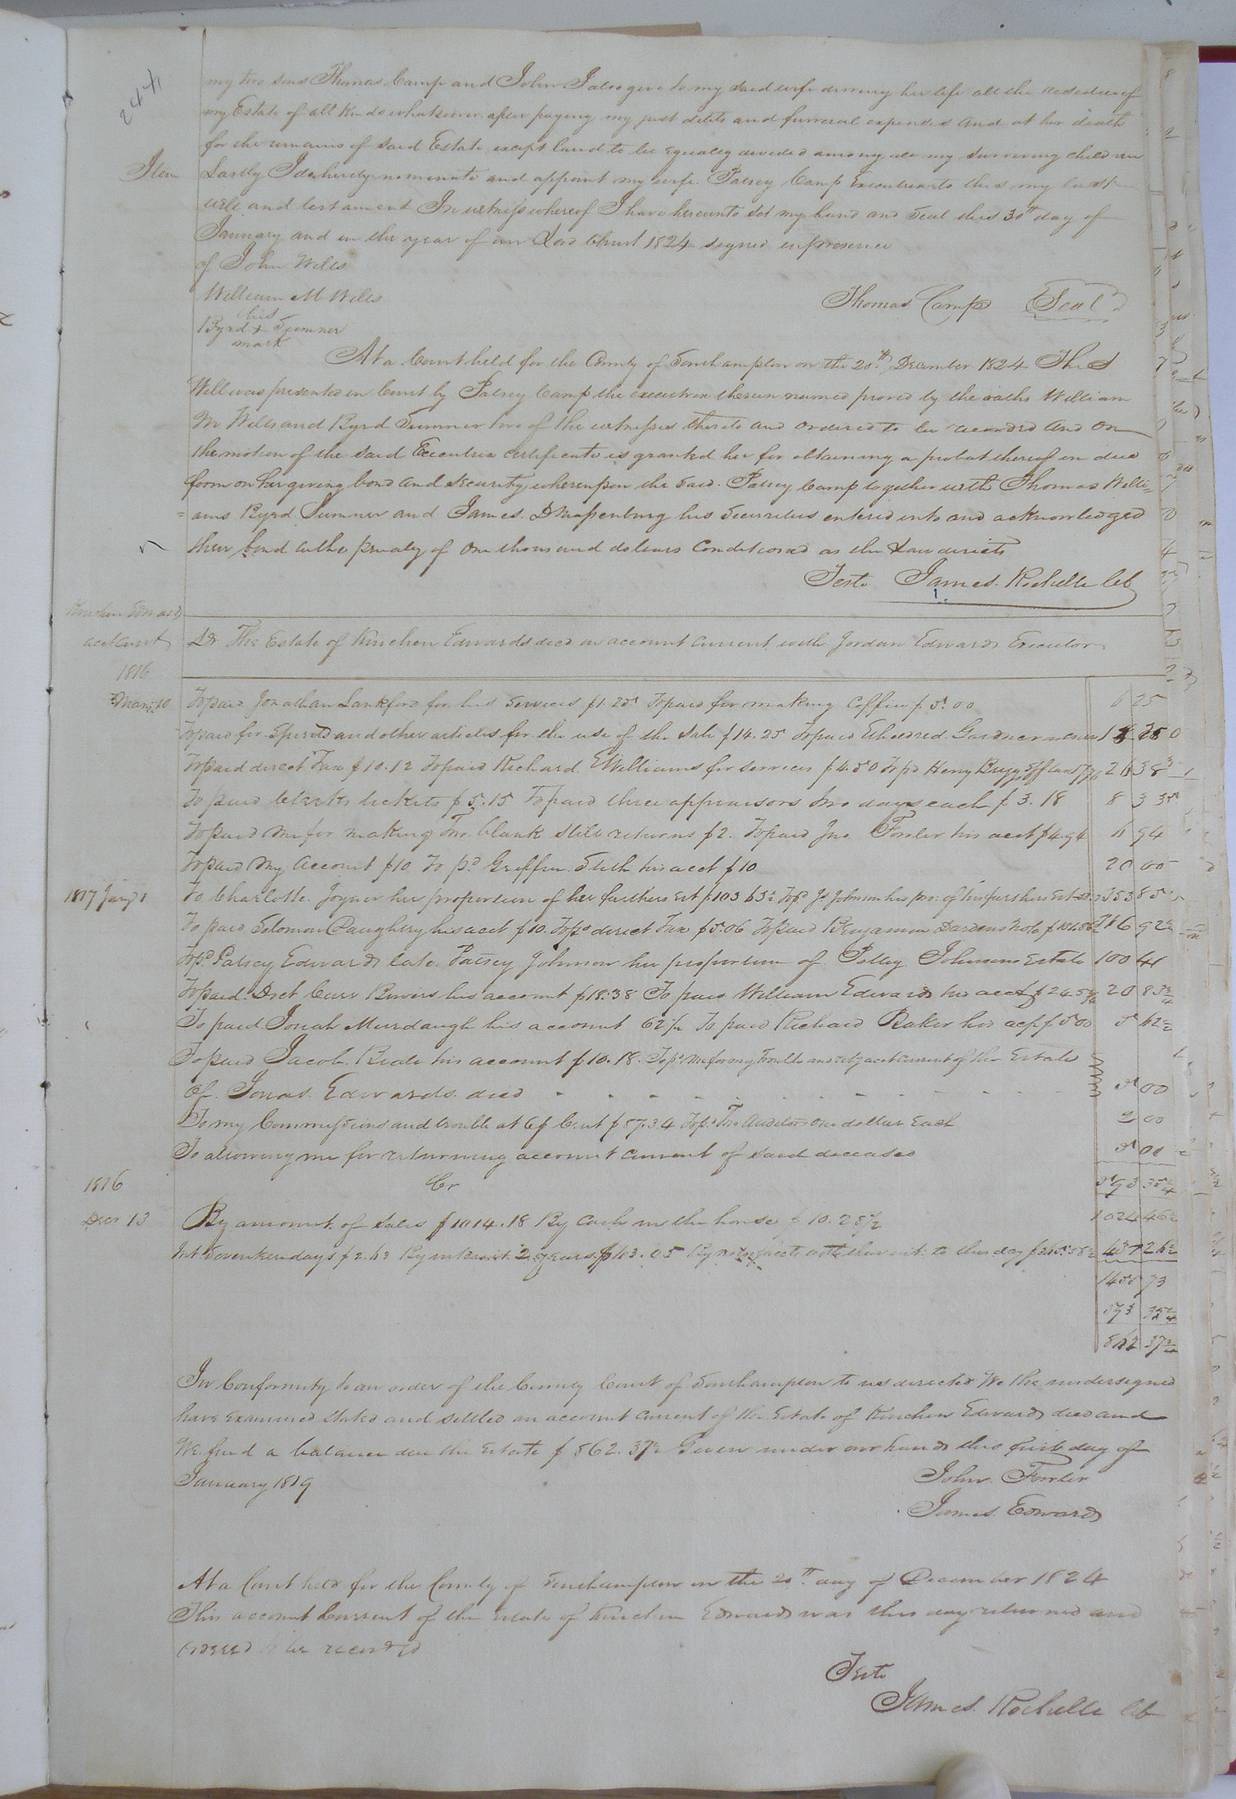 244
my two sons Thomas Camp and John I also give to my said wife during her life all the residue of
my Estate of all kinds whatsoever after paying my just debts and funeral expenses and at her death
for the remains of said Estate except land to be equally divided among all my surviving children
Item Lastly I do hereby nominate and appoint my wife Patsey Camp Executrix to this my last
will and testament In witness whereof I have hereunto set my hand and seal this 30th day of
January and in the year of our Lord Christ 1824 signed in presence
of John Wills
William M Wills Thomas Camp Seal
his
Byrd + Sumner
mark
At a Court held for the County of Southampton on the 20th December 1824 This
Will was presented in Court by Patsey Camp the Executrix therein named proved by the oaths William
M Wills and Byrd Sumner two of the witnesses thereto and ordered to be recorded and on
the motion of the said Executrix certificate is granted her for obtaining a probat thereof in due
form on her giving bond and security whereupon the said Patsey Camp together with Thomas Willi-
ams Byrd Sumner and James his Securities entered into and acknowledged
their bond in the penalty of one thousand dollars conditioned as the Law directs
Teste James Rochelle Clk
account
Dr The Estate of Kinchen Edwards decd in account current with Jordan Edwards Executor
1816
To paid Jonathan Lankford for his services $1.25 To paid for making Coffin $5.00 6 25
To paid for Spirits and other articles for the use of the Sale $14.25 To paid Gardner
To paid direct Tax $10.12 To paid Richard E Williams for services $4.50 To pd Henry
To paid Clerks tickets $5.15 To paid three appraisors two days each $3.18 8 33
To paid me for making two blank still returns $2. To paid Jno Fowler his acct $4.94 6 94
To paid my account $10 To pd Griffin Stith his acct $10 20 00
1817 Jany 1 To Charlotte Joyner her proportion of her fathers Est
To paid Solomon Daughtry his acct $10 To pd direct Tax $5.06 To paid Benjamin Dardens
To pd Patsey Edwards late Patsey Johnson her proportion of Polley Johnsons Estate 100 41
To paid Doct Carr Bowers his account $18.38 To paid William Edwards his acct
To paid Josiah Murdaugh his account 62½ To paid Richard Baker his acct $5.00 5 62½
To paid Jacob his account $10.18. To pd me for my trouble account current of the Estate
of Jonas Edwards decd 5 00
To my Commissions and trouble at 6 p Cent $57.34 To pd Two Auditors one dollar Each 2 00
To allowing me for returning account current of said deceased 5 00
1816 Cr
Decr 13 By amount of Sales $1014.18 By cash in the house $10.28½ 1024 46½
Int seventeen days $2.63 By interest 2 years $103.05
1455 73
593 35¼
862 37½
In Conformity to an order of the County Court of Southampton to us directed We the undersigned
have Examined stated and settled an account current of the Estate of Kinchen Edwards decd and
We find a balance due the Estate $862.37½ Given under our hands this first day of
January 1819 John Fowler
James Edwards
At a Court held for the County of Southampton on the 20th day of December 1824
This account Current of the Estate of Kinchen Edwards was this day returned and
ordered to be recorded
Teste
James Rochelle Clk